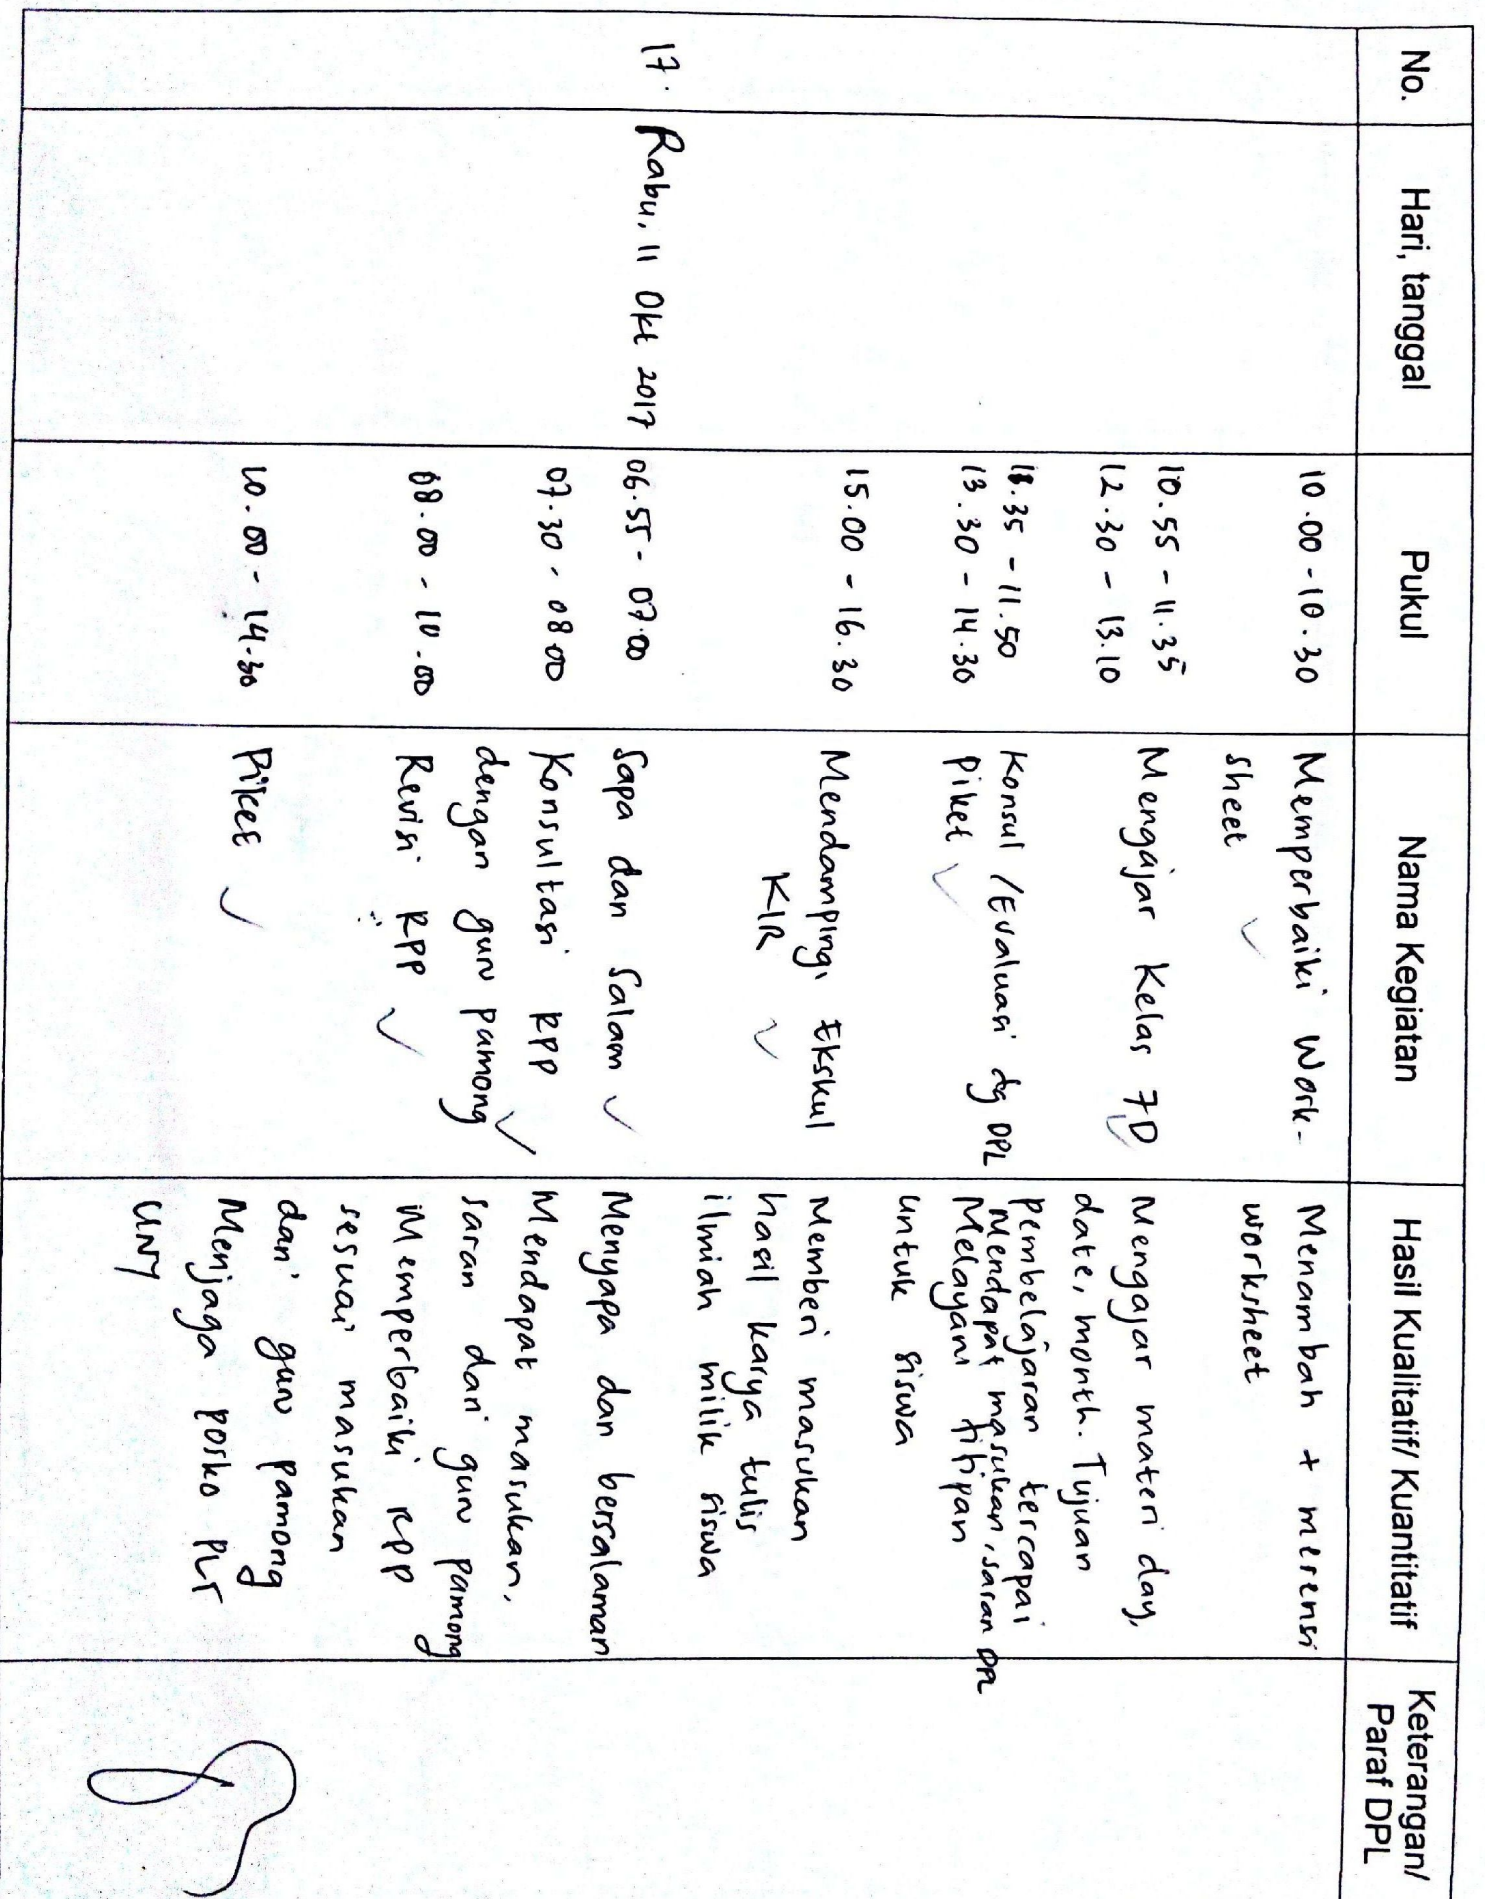 No. Hari, tanggal Pukul Nama Kegiatan Hasil Kualitatif/ Kuantitatif Keterangan/
Paraf DPL
10.00 - 10.30 Memperbaiki Work- Menambah + merensi
sheet ✓ worksheet
10.55 - 11.35 Mengajar Kelas 7D ✓ Mengajar materi day,
12.30 - 13.10 date, month. Tujuan
pembelajaran tercapai
11.35 - 11.50 Konsul /Evaluasi dg DPL Mendapat masukan, saran DPL
13.30 - 14.30 Piket ✓ Melayani titipan
untuk siswa
15.00 - 16.30 Mendampingi Ekskul Memberi masukan
KIR ✓ hasil karya tulis
ilmiah milik siswa
17. Rabu, 11 Okt 2017 06.55 - 07.00 Sapa dan Salam ✓ Menyapa dan bersalaman
07.30 - 08.00 Konsultasi RPP Mendapat masukan,
dengan guru pamong ✓ saran dari guru pamong
08.00 - 10.00 Revisi RPP ✓ Memperbaiki RPP
sesuai masukan
dari guru pamong
10.00 - 14.30 Piket ✓ Menjaga posko PLT
UNY